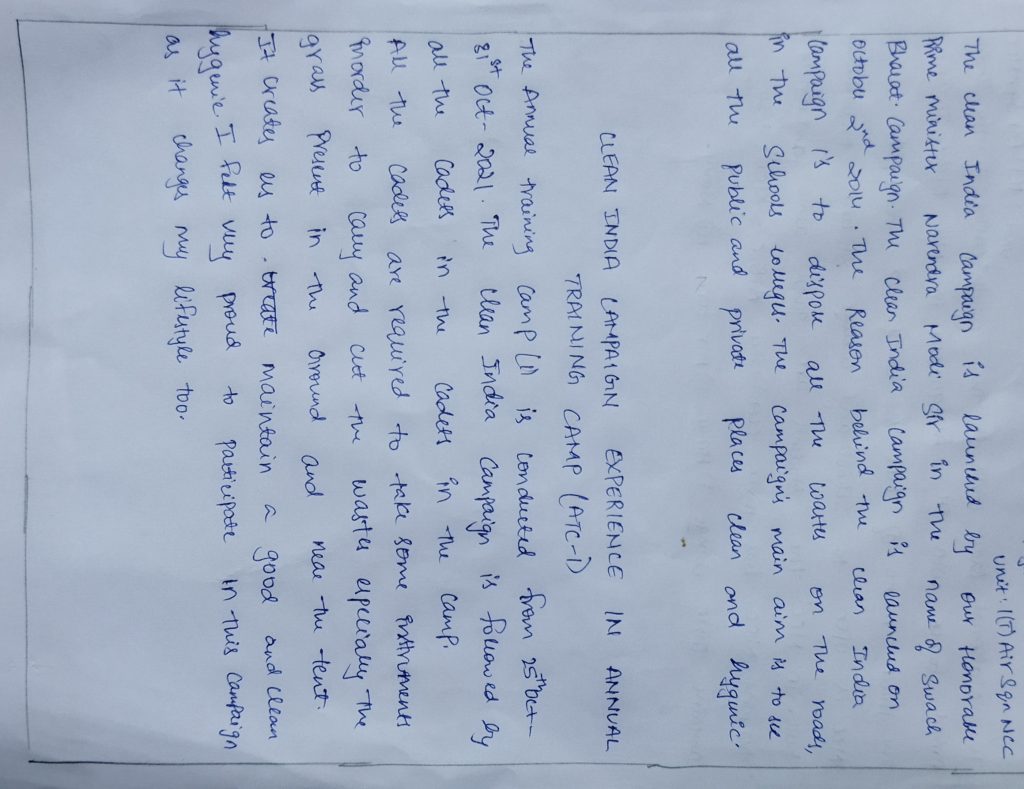 unit: 1(T) Air Sqn NCC
The clean India Campaign is launched by our Honorable
Prime minister Narendra Modi Sir in the name of Swach
Bharat Campaign. The clean India campaign is launched on
october 2nd 2014. The Reason behind the clean India
Campaign is to dispose all the wastes on the roads,
in the Schools colleges. The Campaign's main aim is to see
all the public and private places clean and hygenic.
CLEAN INDIA CAMPAIGN EXPERIENCE IN ANNUAL
TRAINING CAMP (ATC-1)
The Annual training camp (1) is conducted from 25th Oct-
31st Oct-2021. The clean India campaign is followed by
all the Cadets in the cadets in the camp.
All the Cadets are required to take some instruments
inorder to carry and cut the wastes especially the
grass present in the Ground and near the tent.
It creates us to. create maintain a good and clean
hygenie. I felt very proud to participate in this campaign
as it changes my lifestyle too.